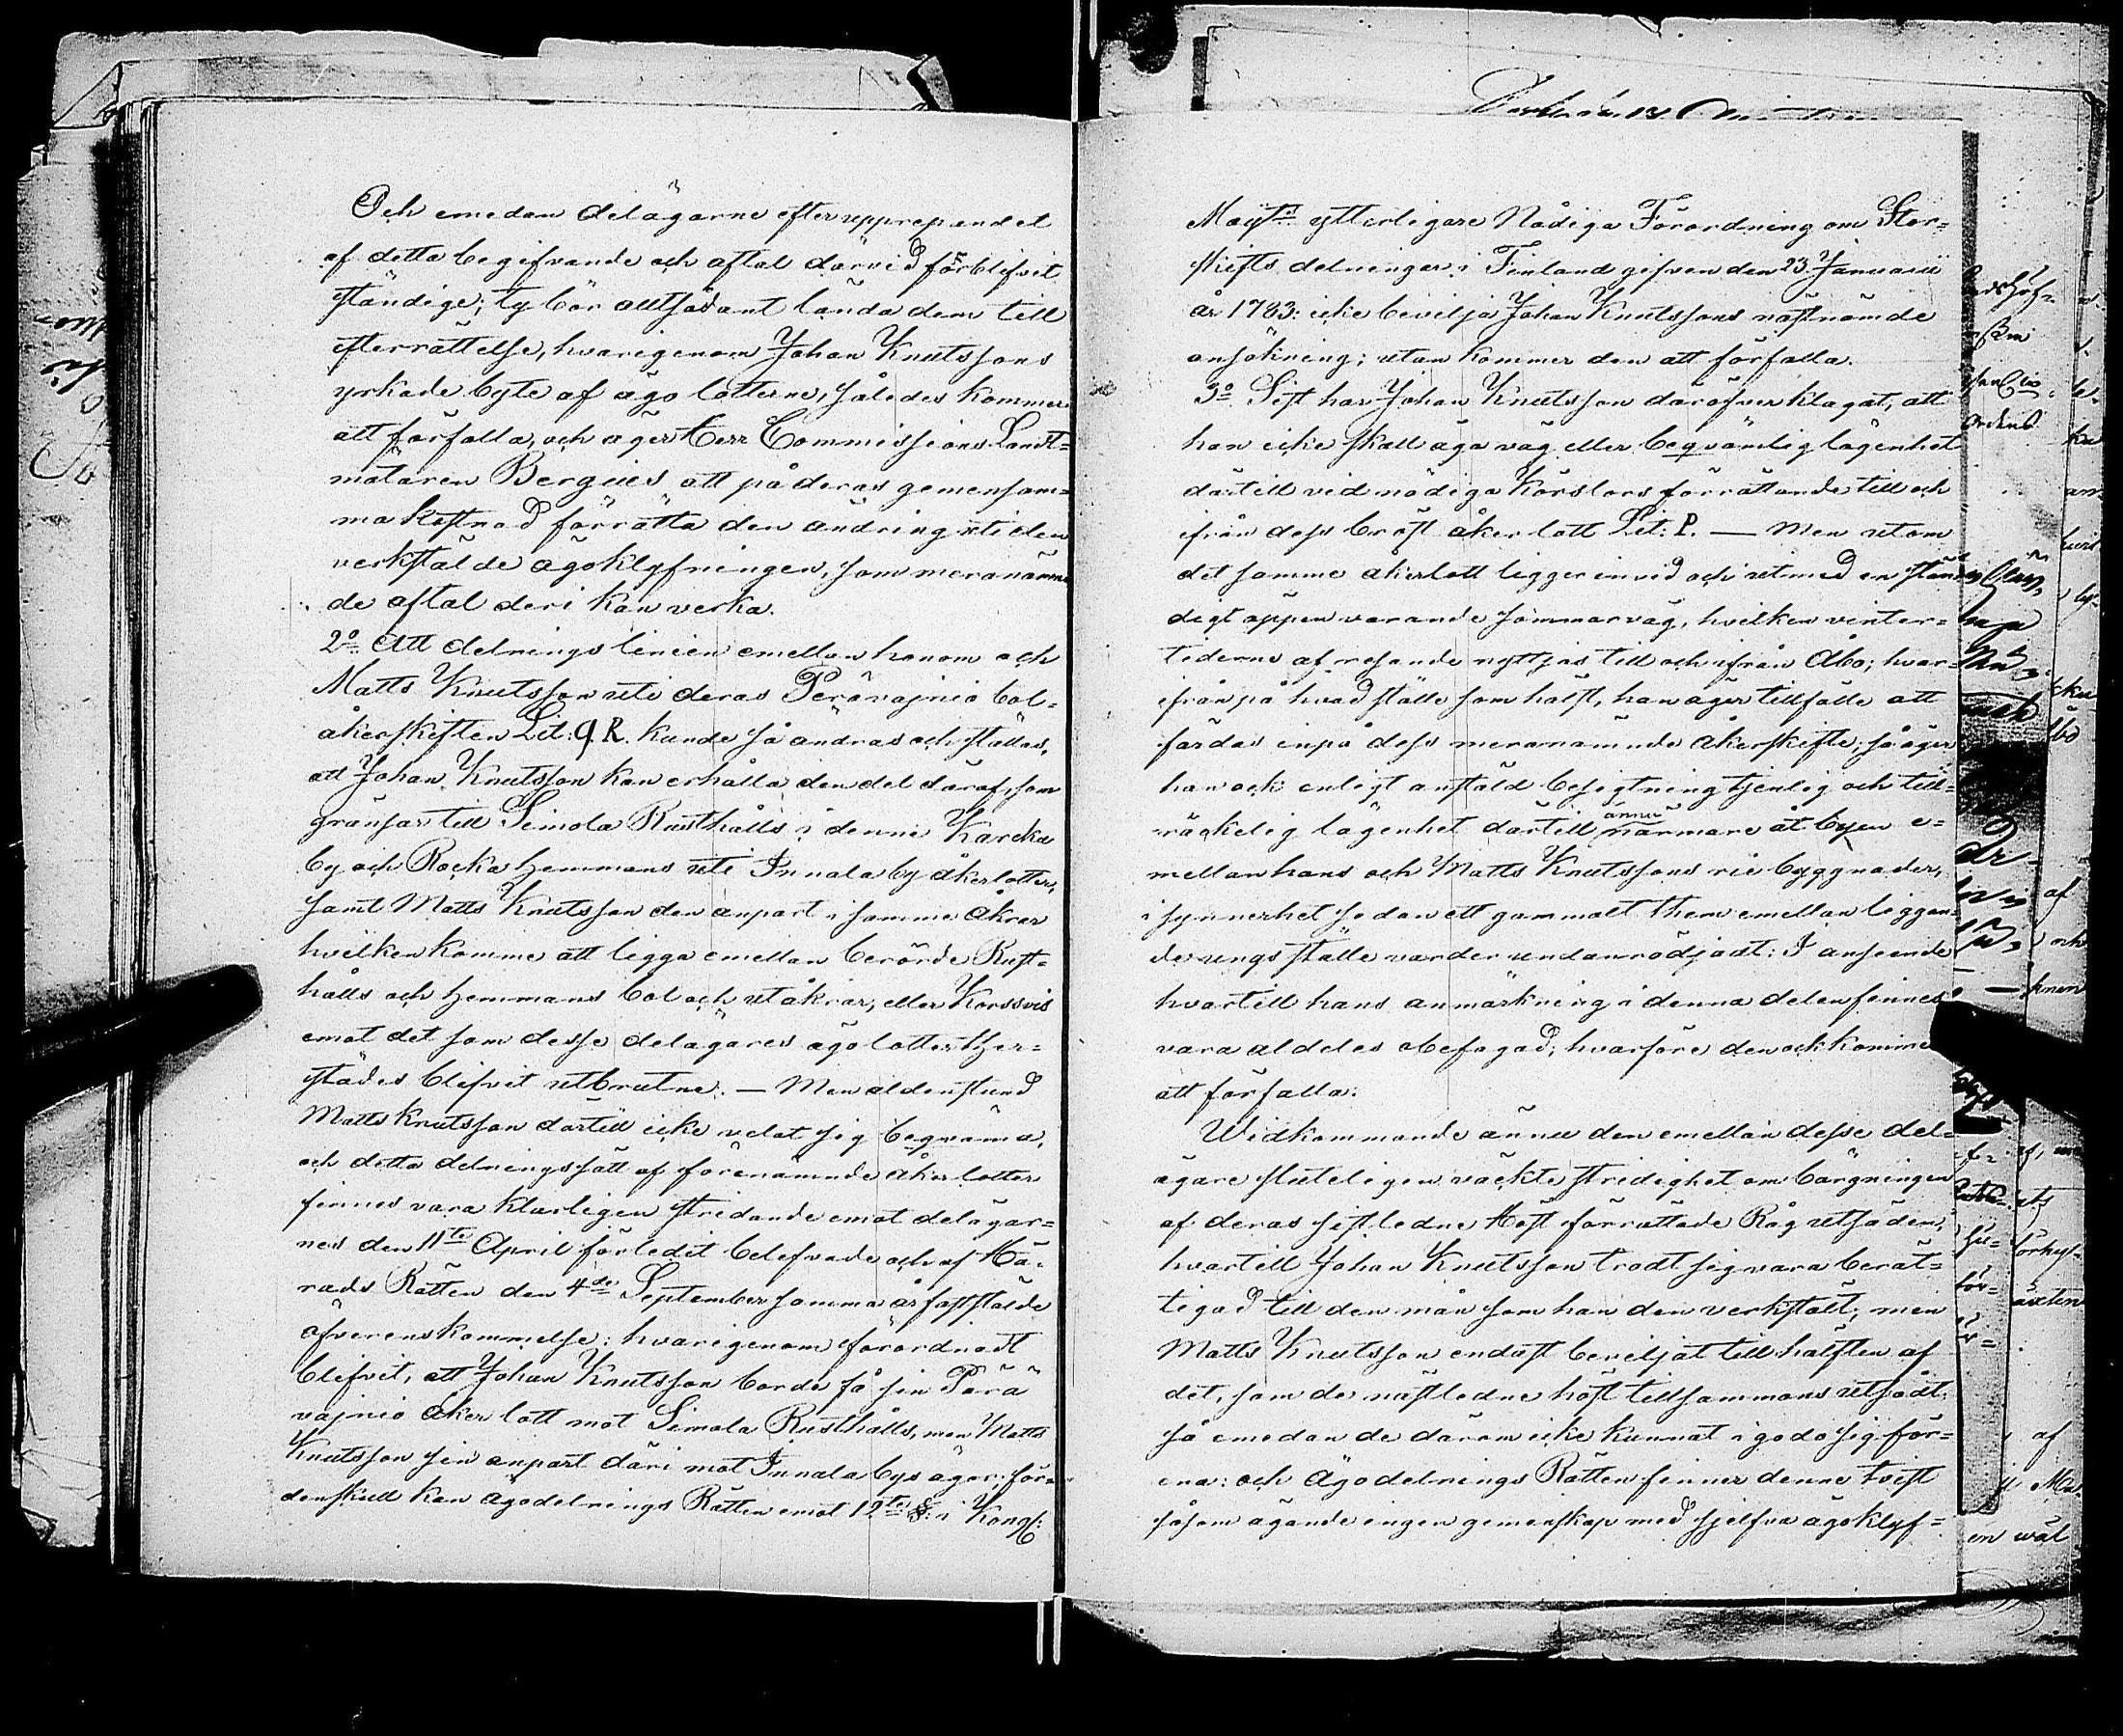 Och emedan delägarne efter upprepandet
af detta begifvande och aftal därvid förblifvit
ständige; ty bör alltsådant lända dem till
efterrättelse, hvarigenom Johan Knutssons
yrkade byte af ägo lotterne, således kommer
att förfalla, och äger Herr Commissions Landt-
mätaren Bergius att på deras gemensam-
ma kostnad förrätta den ändring uti den
verkstälde ägoklyfningen, som meranämn-
de aftal deri kan verka.
2o Att delnings linien emellan honom och
Matts Knutsson uti deras Perävajnio bol-
åkerskiften Lit: q R. kunde så ändras och ställas,
att Johan Knutsson kan erhålla den del däraf, som
gränsar till Simola Rusthålls i denne Kareka
by och Rocka hemmans uti Innala by åkerlotter,
samt Matts Knutsson den anpart i samma åkrar
hvilken komme att ligga emellan berörde Rust-
hålls och hemmans bol och utåkrar, eller Korssvis
emot det som desse delägares ägolotter ther-
städes blifvit utbrutne. — Men aldenstund
Matts Knutsson dartill icke velat sig beqväma,
och detta delningssätt af förenämnde åkerlotter
finnes vara klarligen stridande emot delägar-
nes den 11te April förledit belefvade och af Hä-
rads Rätten den 4de September samma år fastställde
öfverenskommelse: hvarigenom förordnadt
blifvit, att Johan Knutsson borde få sin Perä
vajnio åker lott mot Simola Rusthålls, men Matts
Knutsson sin anpart däri mot Innala bys ägor: för-
denskull kan ägodelnings Rätten emot 12te §: i Kongl:
Mayts ytterligare Nådiga Förordning om Stor-
skifts delningar i Finland gifven den 23 Januarii
år 1783: icke bevilja Johan Knutssons nästnämde
ansökning; utan kommer den att förfalla.
3o Sist har Johan Knutsson däröfver klagat, att
han icke skall äga väg eller beqvämlig lägenhet
dartill vid nödiga körslors förrättande till och
ifrån dess bröst åker lott Lit: P. — Men utom
det samme åkerlott ligger invid och utmed en stän-
digt öppen varande sommarväg, hvilken vinter-
tiderne af resande nyttjas till och ifrån Åbo; hvar-
ifrån på hvad ställe som hälst, han äger tillfälle att
färdas inpå dess meranämnde åkerskifte; så äger
han ock enligt anstäld besigtning tjenlig och till-
räckelig lägenhet dartill ännu närmare åt byen e-
mellan hans och Matts Knutssons rie byggnader,
i synnerhet sedan ett gammalt them emellan liggan-
de ungsställe varder undanrödjadt: I anseende
hvartill hans anmärkning i denna delen finnes
vara aldeles obefogad; hvarföre den ock komme
att förfalla:
Widkommande ännu den emellan desse del-
ägare sluteligen väckte stridighet om bärgningen
af deras sistledne Höst förrättade Råg utsäden,
hvartill Johan Knutsson trodt sig vara berät-
tigad till den mån som han den verkstält; men
Matts Knutsson endast beviljat till hälften af
det, som de nästledne höst tillsammans utsådt,
så emedan de därom icke kunnat i godo sig för-
ena: och Ägodelnings Rätten finner denne tvist
såsom ägande ingen gemenskap med sjelfva ägoklyf-